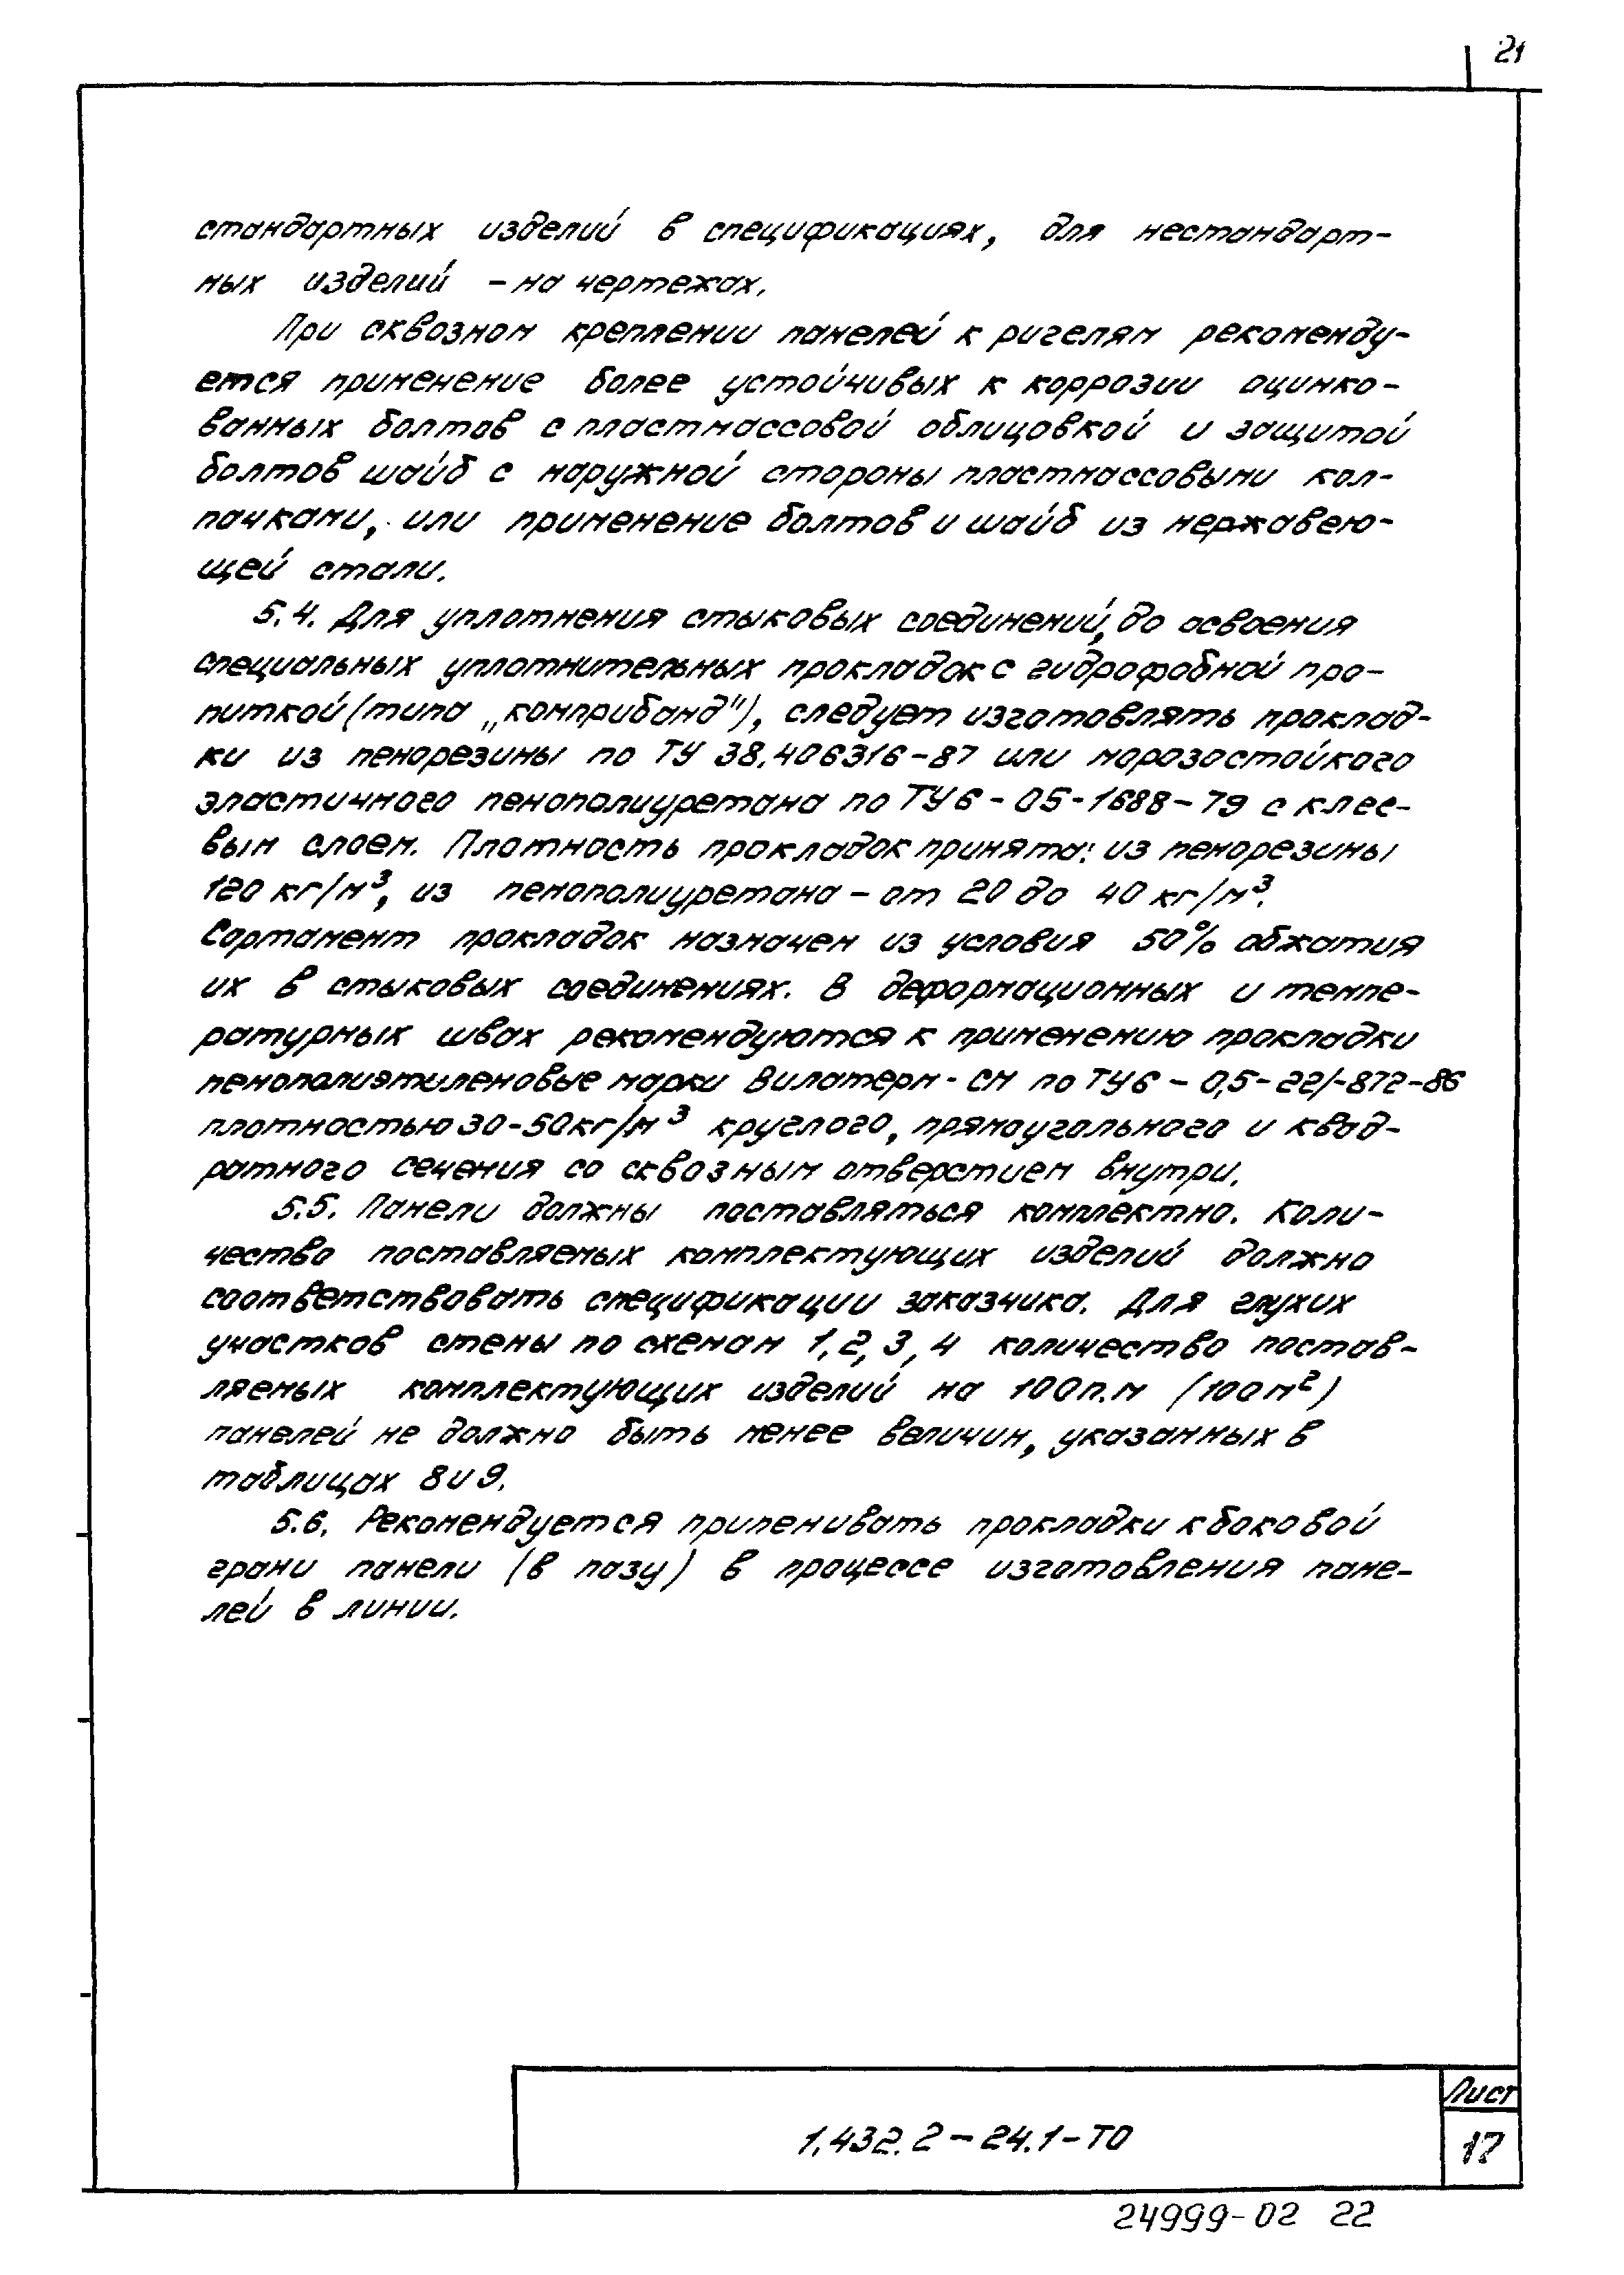 21
стандартных изделий в спецификациях, для нестандарт-
ных изделий – на чертежах.
При сквозном креплении панелей к ригелям рекоменду-
ется применение более устойчивых к коррозии оцинко-
ванных болтов с пластмассовой облицовкой и защитой
болтов шайб с наружной стороны пластмассовыми кол-
пачками, или применение болтов и шайб из нержавею-
щей стали.
5.4. Для уплотнения стыковых соединений, до освоения
специальных уплотнительных прокладок с гидрофобной про-
питкой (типа „комприбанд"), следует изготовлять проклад-
ки из пенорезины по ТУ 38.406316-87 или морозостойкого
эластичного пенополиуретана по ТУ6-05-1688-79 с клее-
вым слоем. Плотность прокладок принята: из пенорезины
120 кг/м³, из пенополиуретана – от 20 до 40 кг/м³.
Сортамент прокладок назначен из условия 50% обжатия
их в стыковых соединениях. В деформационных и темпе-
ратурных швах рекомендуются к применению прокладки
пенополиэтиленовые марки Вилатерм-СМ по ТУ6-0,5-221-872-86
плотностью 30-50кг/м³ круглого, прямоугольного и квад-
ратного сечения со сквозным отверстием внутри.
5.5. Панели должны поставляться комплектно. Коли-
чество поставляемых комплектующих изделий должно
соответствовать спецификации заказчика. Для глухих
участков стены по схемам 1, 2, 3, 4 количество постав-
ляемых комплектующих изделий на 100п.м (100м²)
панелей не должно быть менее величин, указанных в
таблицах 8 и 9.
5.6. Рекомендуется припенивать прокладки к боковой
грани панели (в пазу) в процессе изготовления пане-
лей в линии.
1.432.2-24.1-ТО
Лист
17
24999-02 22